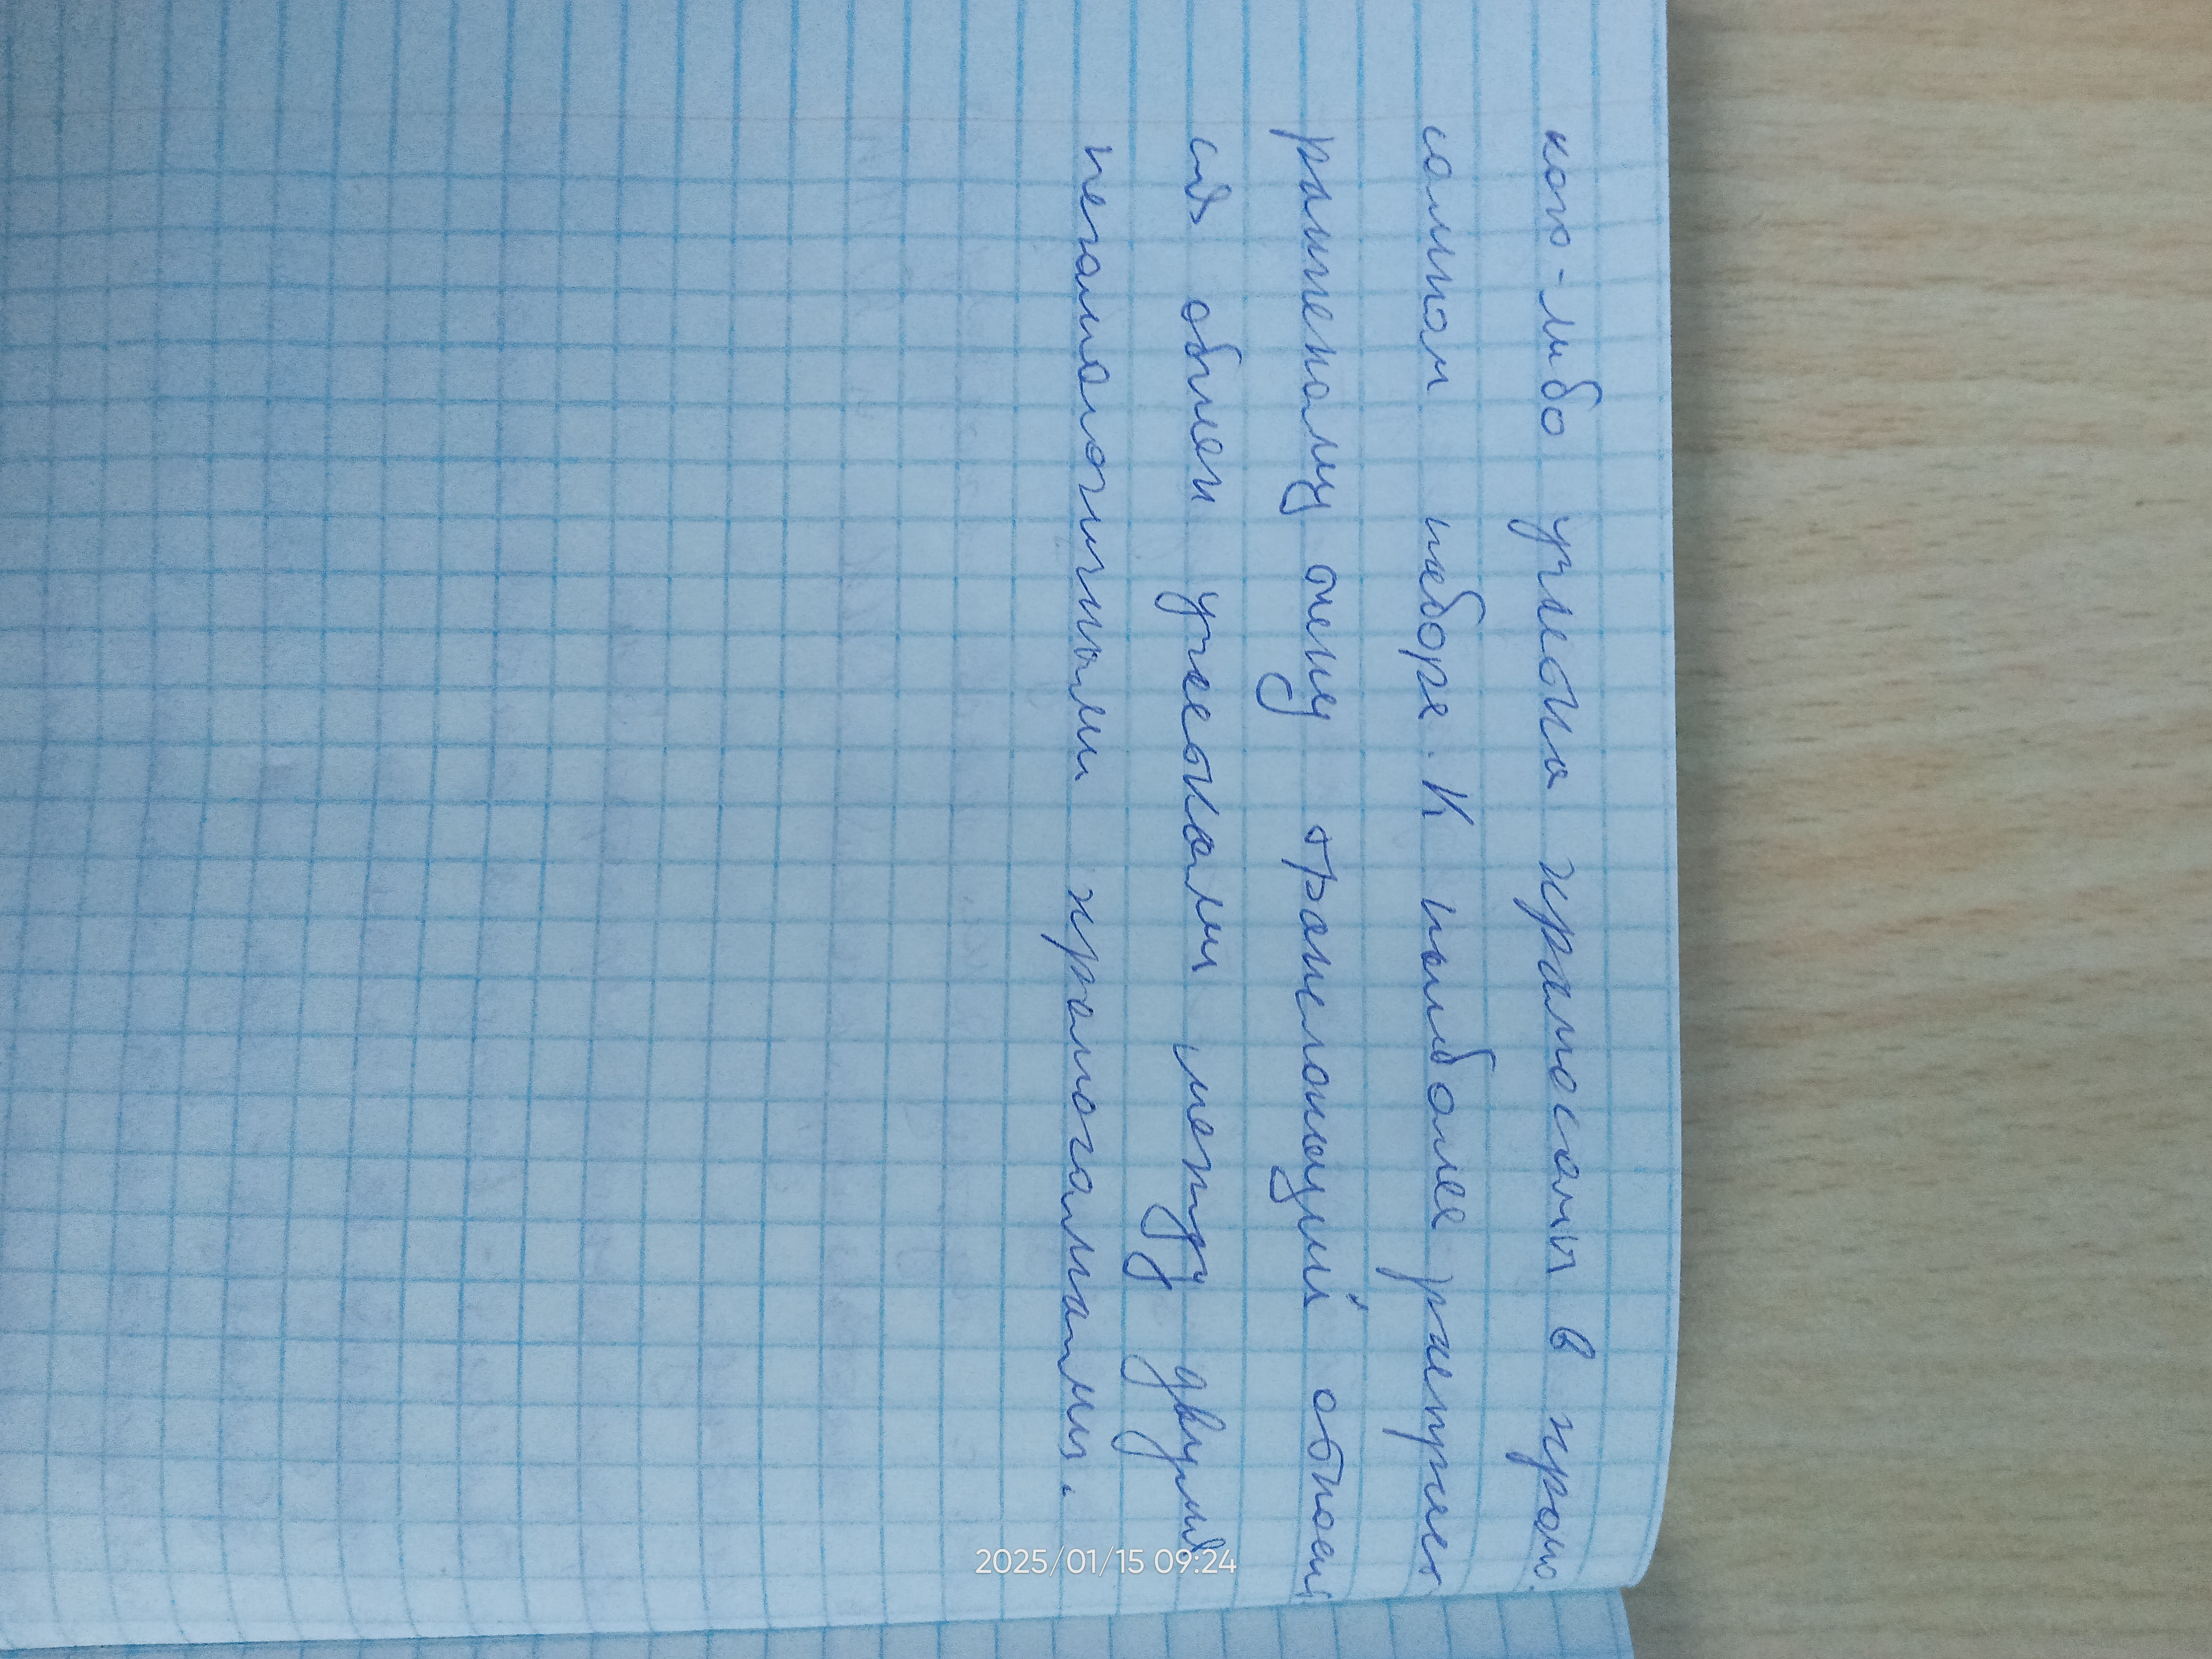 кого-либо участка хромосомы в хромо
сомном наборе. К наиболее распрост
раненному типу транслокаций относит
ся обмен участками между двумя
негомологичными хромосомами.
2025/01/15 09:24